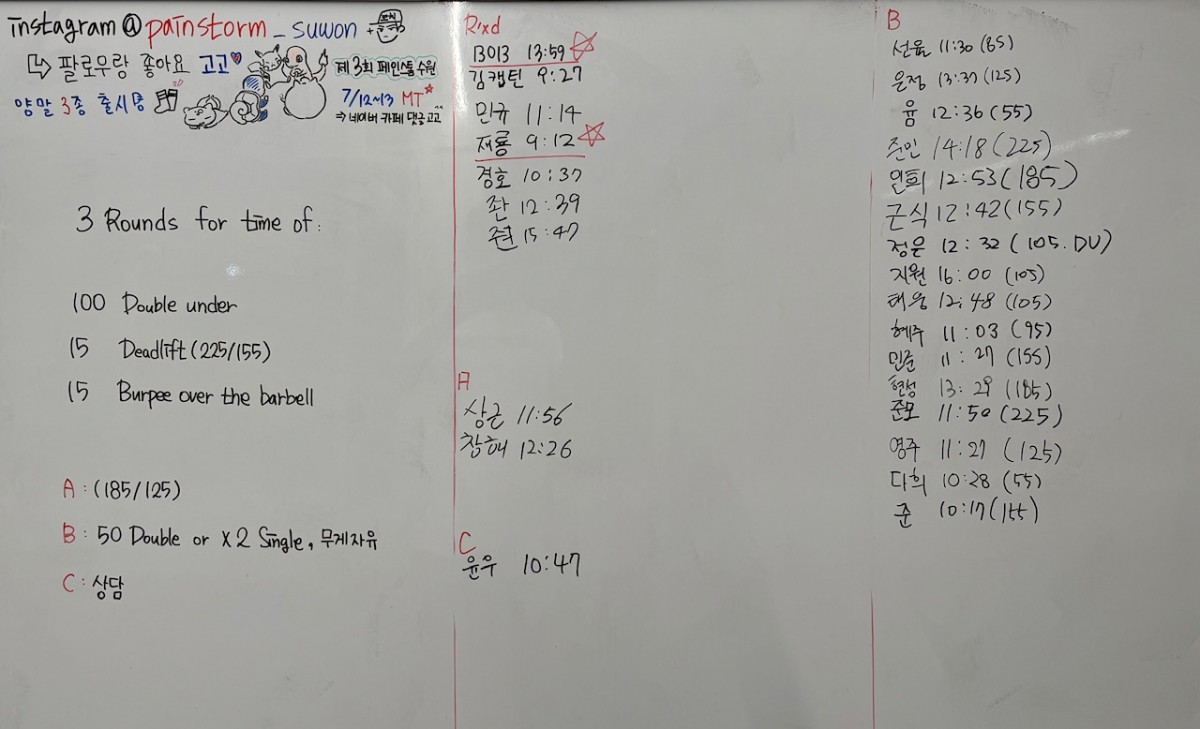 instagram@painstorm_suwon
팔로우랑 좋아요 고고
제 3회 페인스톰 수원
양말 3종 출시중
7/12~13 MT
⇒ 네이버 카페 댓글 고고
3 Rounds for time of:
100 Double under
15 Deadlift (225/155)
15 Burpee over the barbell
A : (185/125)
B : 50 Double or x2 Single, 무게자유
C : 상담
R'xd
BOB 13:59
김캡틴 9:27
민규 11:14
재룡 9:12
경호 10:37
좌 12:39
15:47
A
상근 11:56
창해 12:26
C
윤우 10:47
B
선율 11:30 (65)
은정 13:37 (125)
윰 12:36 (55)
준인 14:18 (225)
인희 12:53 (185)
근식 12:42 (155)
정은 12:32 (105. DU)
지원 16:00 (105)
태웅 12:48 (105)
혜주 11:03 (95)
민준 11:27 (155)
현성 13:29 (185)
준모 11:50 (225)
영주 11:27 (125)
다희 10:28 (55)
준 10:17 (155)